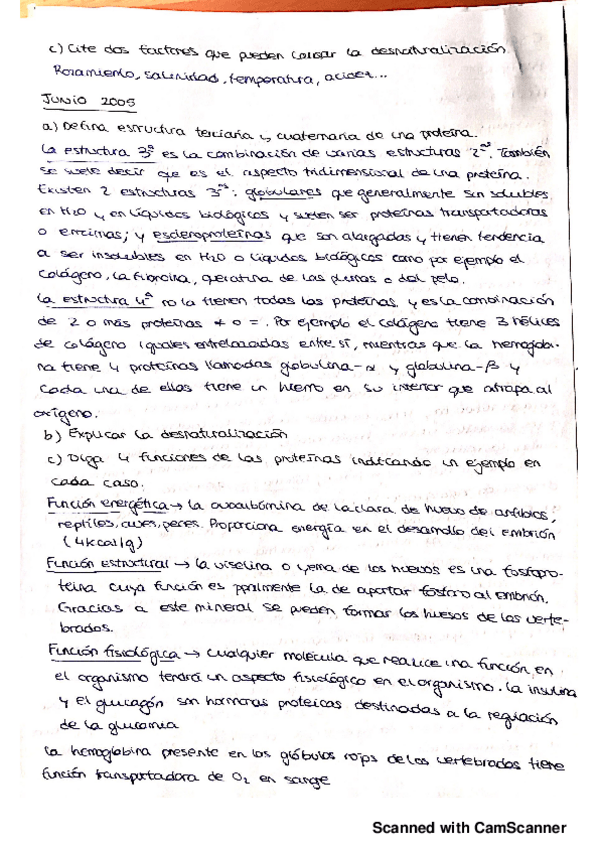 c) Cite dos factores que pueden causar la desnaturalización.
Rozamiento, salinidad, temperatura, acidez...
JUNIO 2005
a) Defina estructura terciaria y cuaternaria de una proteína.
La estructura 3ª es la combinación de varias estructuras 2ªˢ. También
se suele decir que es el aspecto tridimensional de una proteína.
Existen 2 estructuras 3ªˢ: globulares que generalmente son solubles
en H2O y en líquidos biológicos y suelen ser proteínas transportadoras
o enzimas; y escleroproteínas que son alargadas y tienen tendencia
a ser insolubles en H2O o líquidos biológicos como por ejemplo el
colágeno, la fibroína, queratina de las plumas o del pelo.
La estructura 4ª no la tienen todas las proteínas y es la combinación
de 2 o más proteínas ≠ o =. Por ejemplo el colágeno tiene 3 hélices
de colágeno iguales entrelazadas entre sí, mientras que la hemoglobi-
na tiene 4 proteínas llamadas globulina-α y globulina-β y
cada una de ellas tiene un hierro en su interior que atrapa al
oxígeno.
b) Explicar la desnaturalización
c) Diga 4 funciones de las proteínas indicando un ejemplo en
cada caso.
Función energética → la ovoalbúmina de la clara de huevo de anfibios,
reptiles, aves, peces. Proporciona energía en el desarrollo del embrión
(4kcal/g)
Función estructural → la viselina o yema de los huevos es una fosfopro-
teína cuya función es ppalmente la de aportar fósforo al embrión.
Gracias a este mineral se pueden formar los huesos de los verte-
brados.
Función fisiológica → cualquier molécula que realice una función en
el organismo tendrá un aspecto fisiológico en el organismo. La insulina
y el glucagón son hormonas proteicas destinadas a la regulación
de la glucemia
La hemoglobina presente en los glóbulos rojos de los vertebrados tiene
función transportadora de O2 en sangre
Scanned with CamScanner